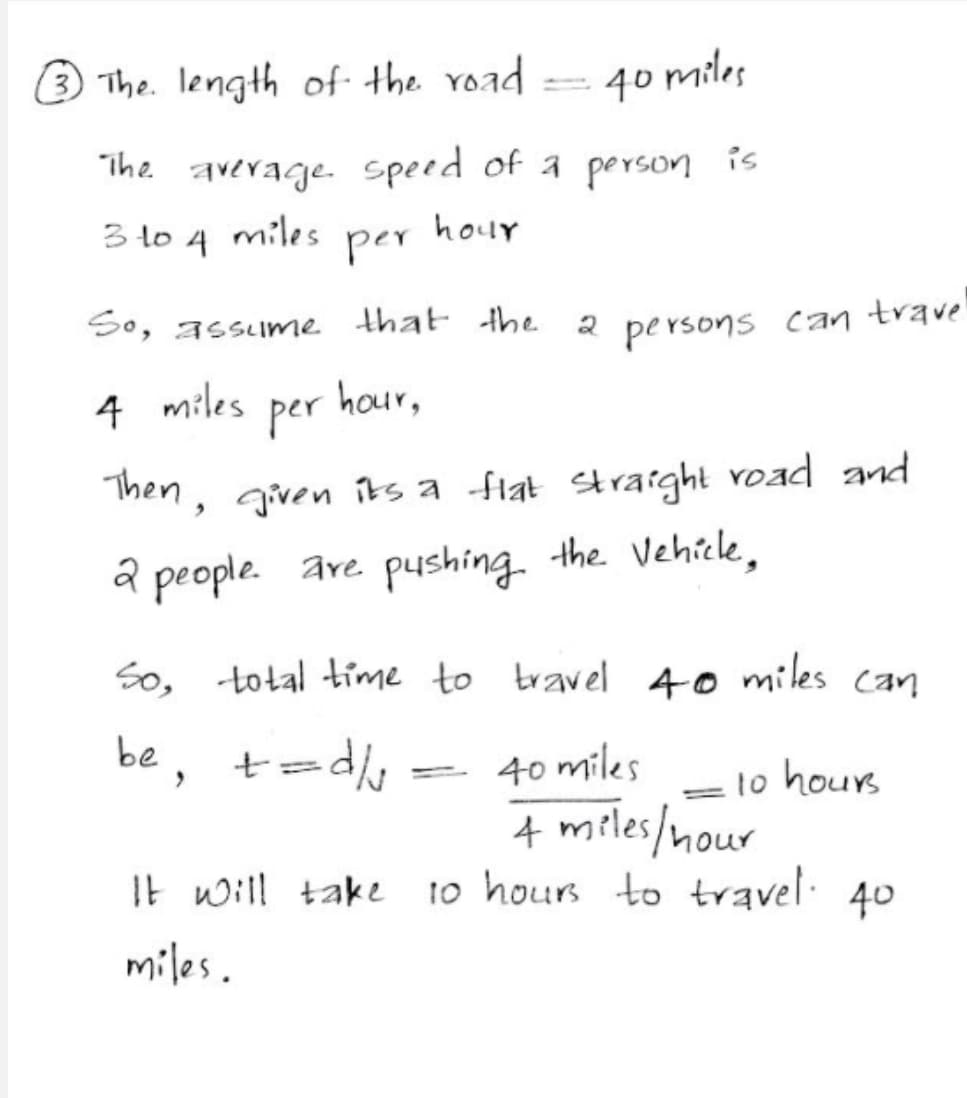 ③ The length of the road = 40 miles
The average speed of a person is
3 to 4 miles per hour
So, assume that the 2 persons can travel
4 miles per hour,
Then, given its a flat straight road and
2 people are pushing the vehicle,
So, total time to travel 40 miles can
be, t=d/v = 40 miles / 4 miles/hour = 10 hours
It will take 10 hours to travel. 40
miles.